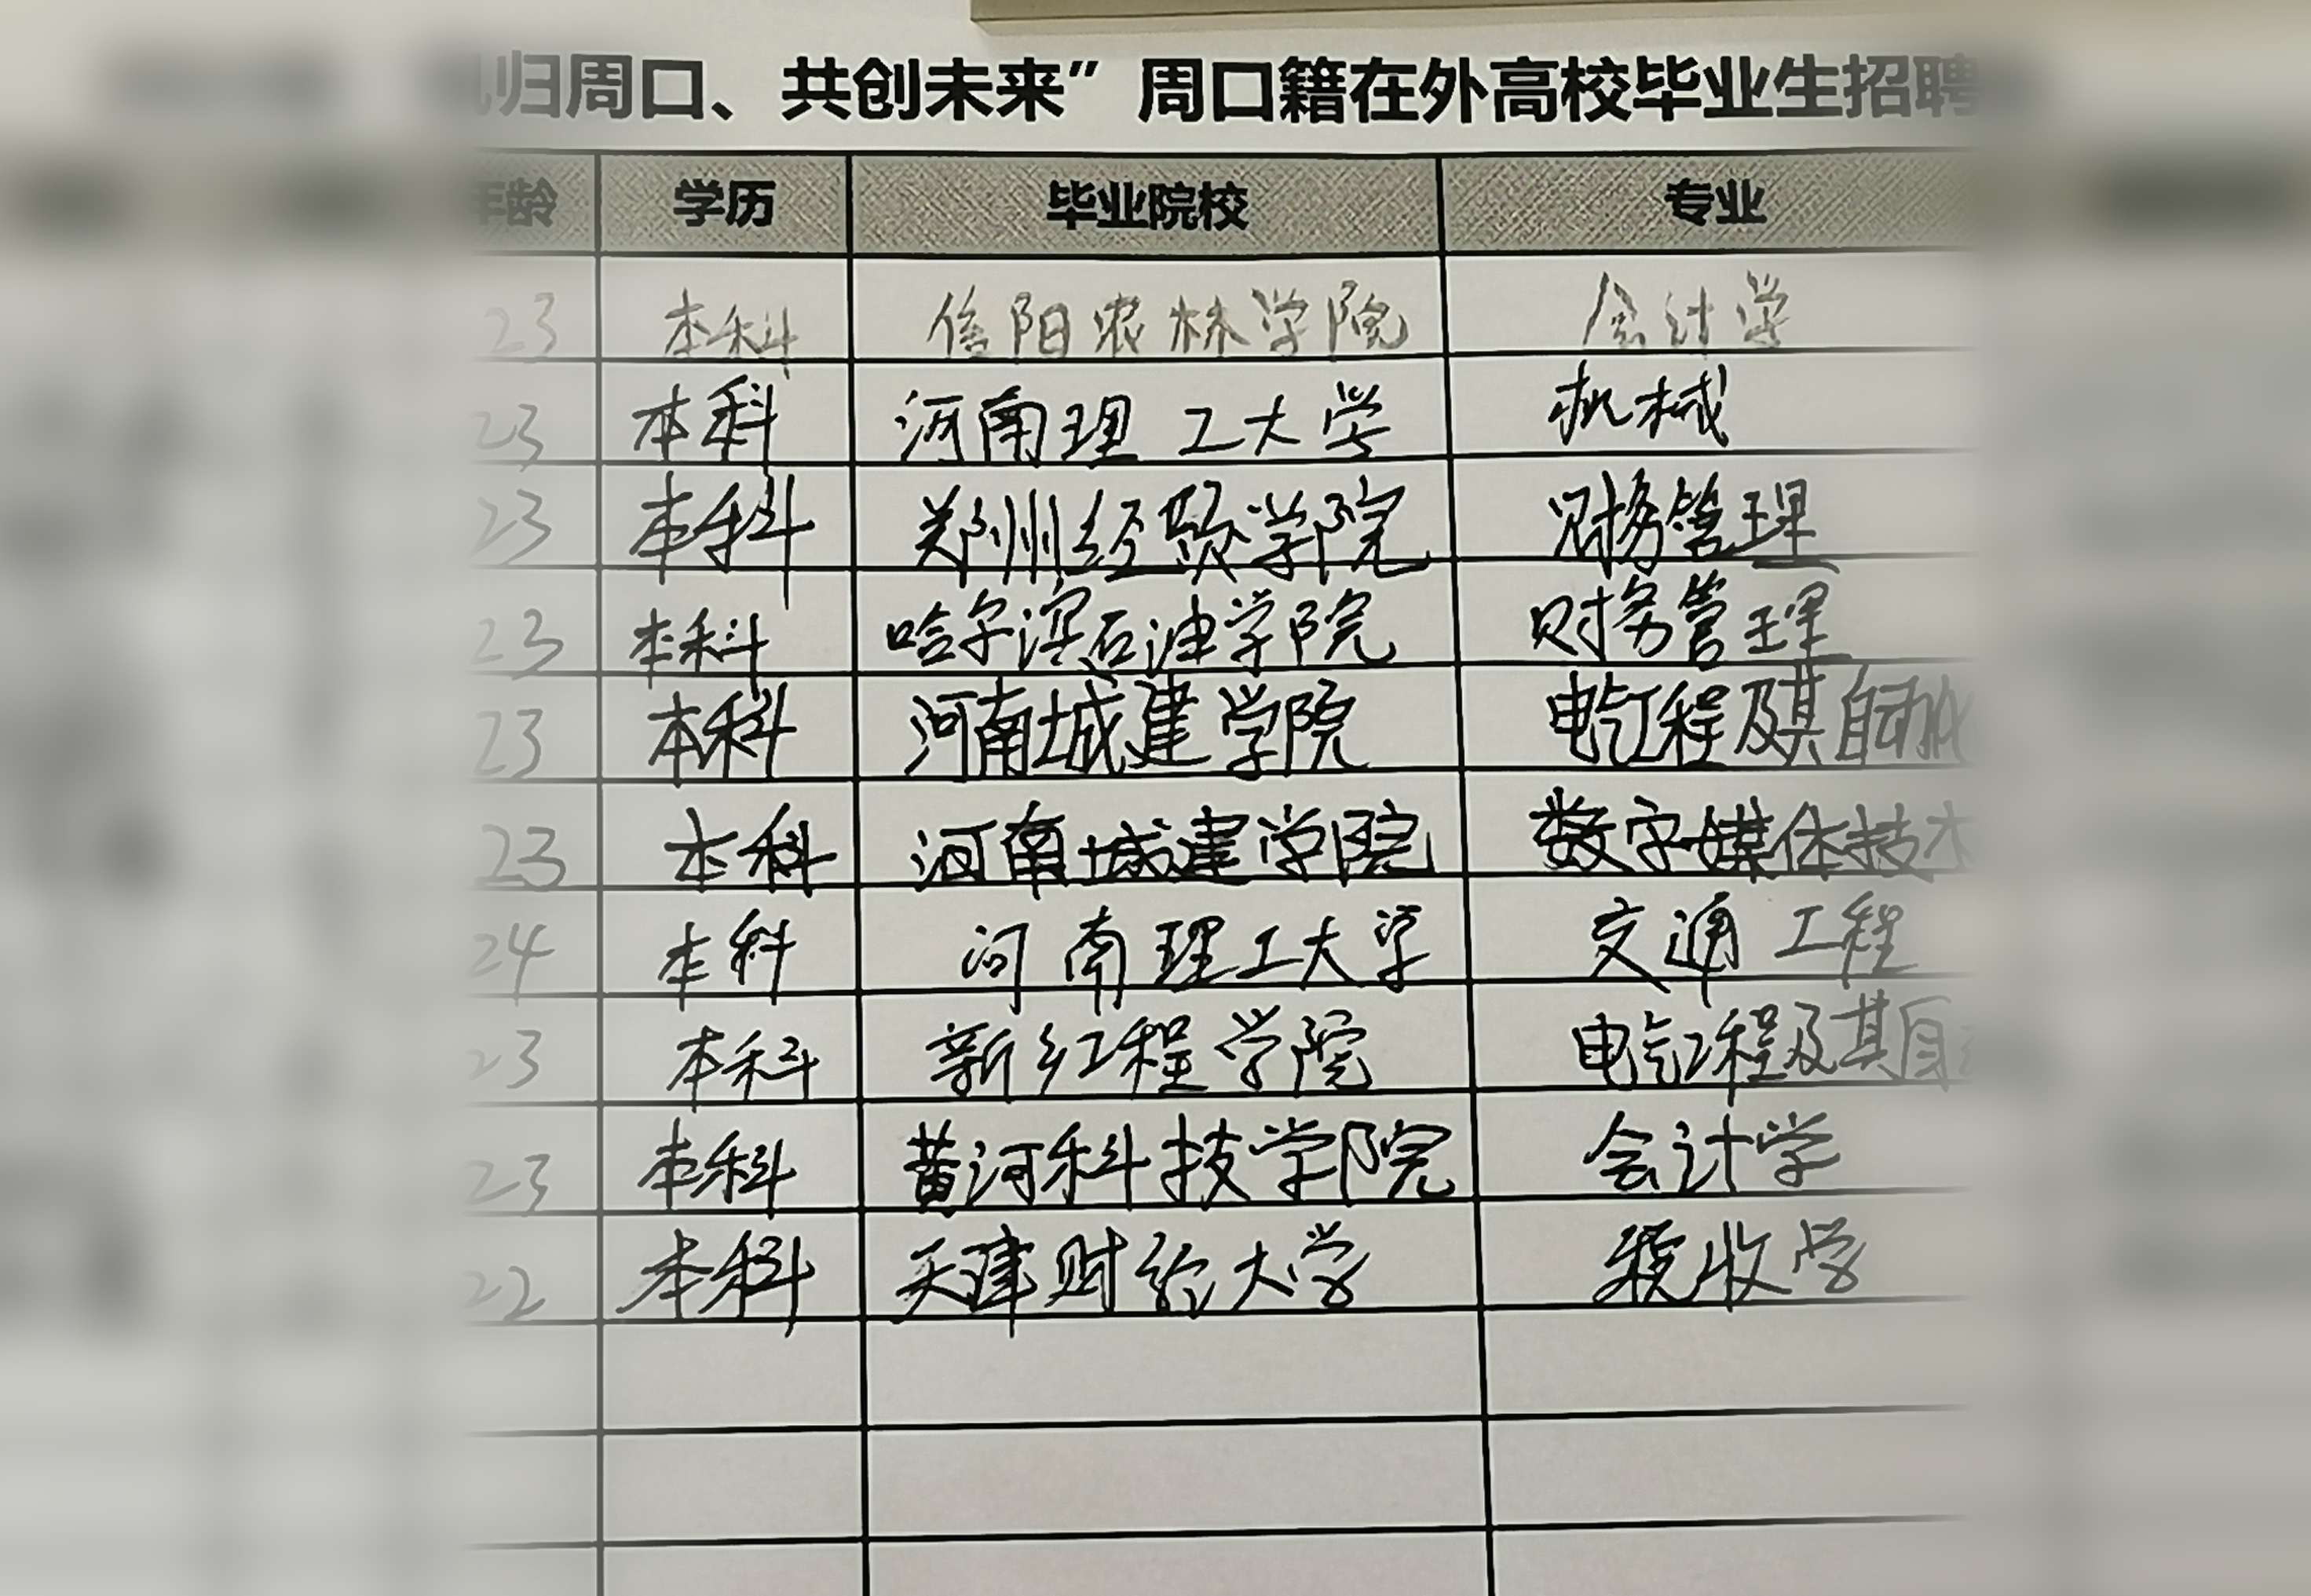 归周口、共创未来”周口籍在外高校毕业生招聘
年龄 学历 毕业院校 专业
23 本科 信阳农林学院 会计学
23 本科 河南理工大学 机械
23 本科 郑州经贸学院 财务管理
23 本科 哈尔滨石油学院 财务管理
23 本科 河南城建学院 电气工程及其自动化
23 本科 河南城建学院 数字媒体技术
24 本科 河南理工大学 交通工程
23 本科 新乡工程学院 电气工程及其自
23 本科 黄河科技学院 会计学
22 本科 天津财经大学 税收学